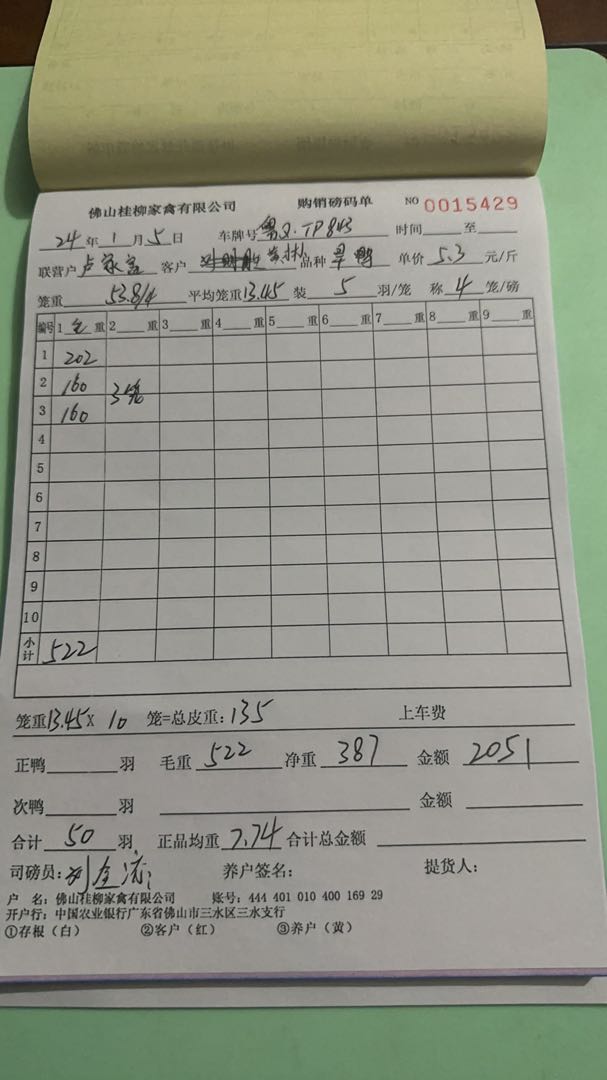 佛山桂柳家禽有限公司 购销磅码单 NO 0015429
24年1月5日 车牌号粤X·TP843 时间 至
联营户 卢 客户 品种 旱鸭 单价 5.3 元/斤
笼重 53.8/4 平均笼重13.45 装 5 羽/笼 称 4 笼/磅
编号 1 毛 重 2 重 3 重 4 重 5 重 6 重 7 重 8 重 9 重
1 202
2 160
3 160
4
5
6
7
8
9
10
小计 522
笼重13.45X 10 笼=总皮重:135 上车费
正鸭 羽 毛重 522 净重 387 金额 2051
次鸭 羽 金额
合计 50 羽 正品均重 7.74 合计总金额
司磅员: 养户签名: 提货人:
户 名: 佛山桂柳家禽有限公司 账号: 444 401 010 400 169 29
开户行: 中国农业银行广东省佛山市三水区三水支行
①存根（白） ②客户（红） ③养户（黄）